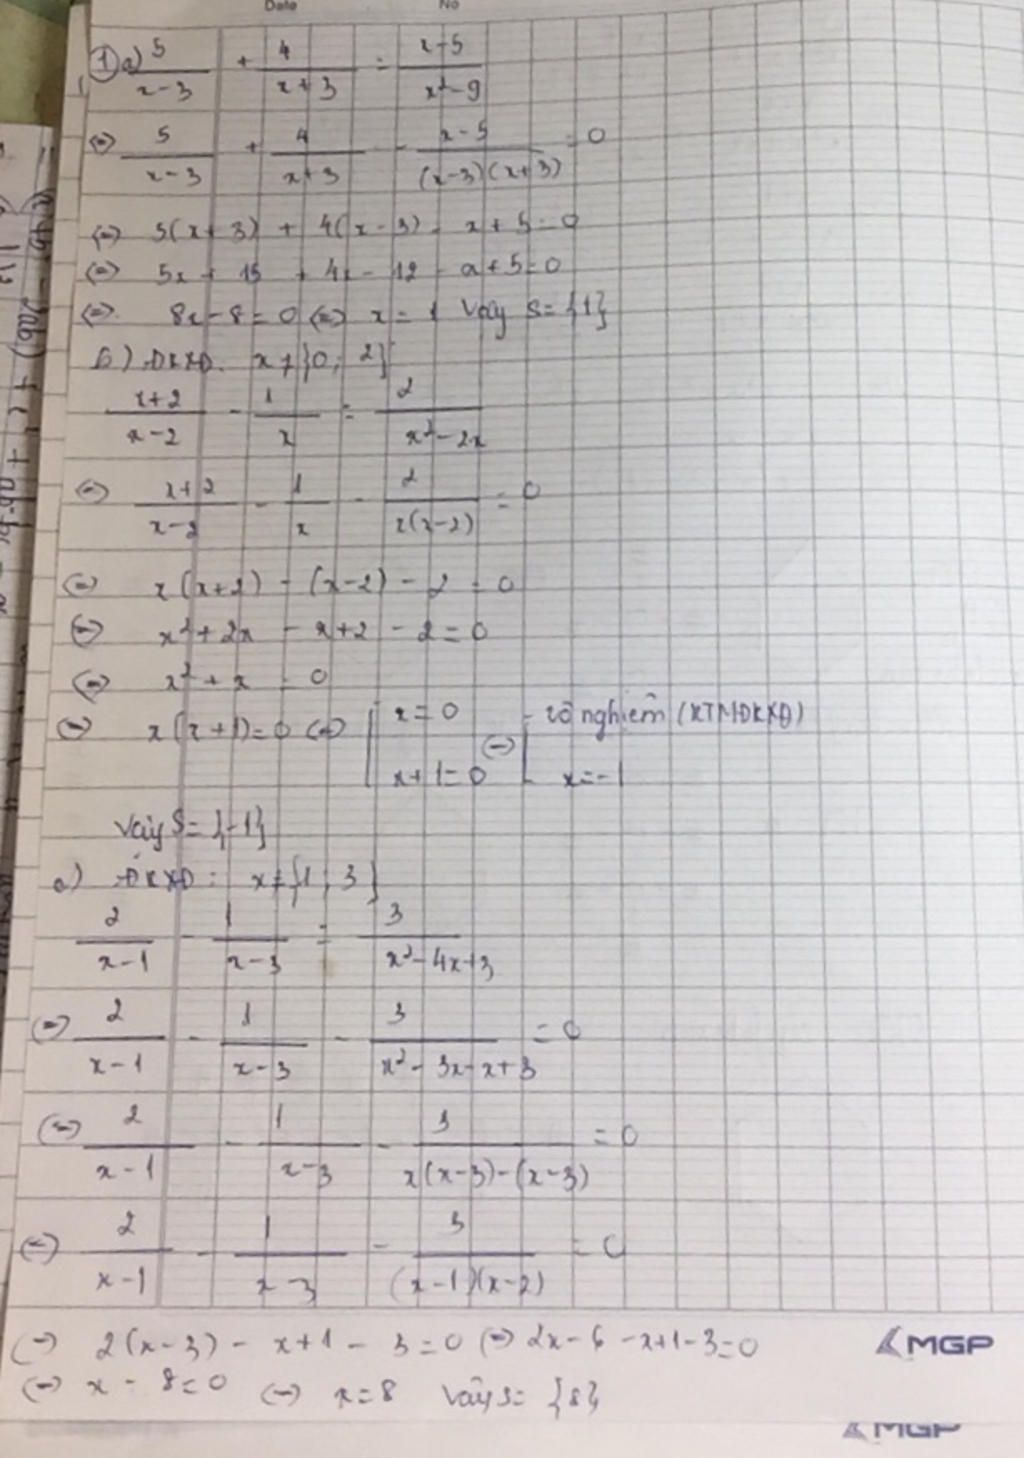 Date No
① a) 5/(x-3) + 4/(x+3) = (x-5)/(x²-9)
(=) 5/(x-3) + 4/(x+3) - (x-5)/((x-3)(x+3)) = 0
(=) 5(x+3) + 4(x-3) - x+5=0
(=) 5x + 15 + 4x - 12 - x+5=0
(=) 8x-8=0 (=) x=1 Vậy S={1}
b) ĐKXĐ: x≠{0; 2}
(x+2)/(x-2) - 1/x = 2/(x²-2x)
(=) (x+2)/(x-2) - 1/x - 2/(x(x-2)) = 0
(=) x(x+2) - (x-2) - 2 = 0
(=) x²+2x - x+2 - 2=0
(=) x²+x = 0
(=) x(x+1)=0 (=) [x=0 ; x+1=0 (=) [vô nghiệm (KTMĐKXĐ) ; x=-1
Vậy S={-1}
c) ĐKXĐ: x≠{1; 3}
2/(x-1) - 1/(x-3) = 3/(x²-4x+3)
(=) 2/(x-1) - 1/(x-3) - 3/(x²-3x-x+3) = 0
(=) 2/(x-1) - 1/(x-3) - 3/(x(x-3)-(x-3)) = 0
(=) 2/(x-1) - 1/(x-3) - 3/((x-1)(x-2)) = 0
(=) 2(x-3) - x+1 - 3=0 (=) 2x-6-x+1-3=0
(=) x-8=0 (=) x=8 Vậy S={8}
MGP
MGP